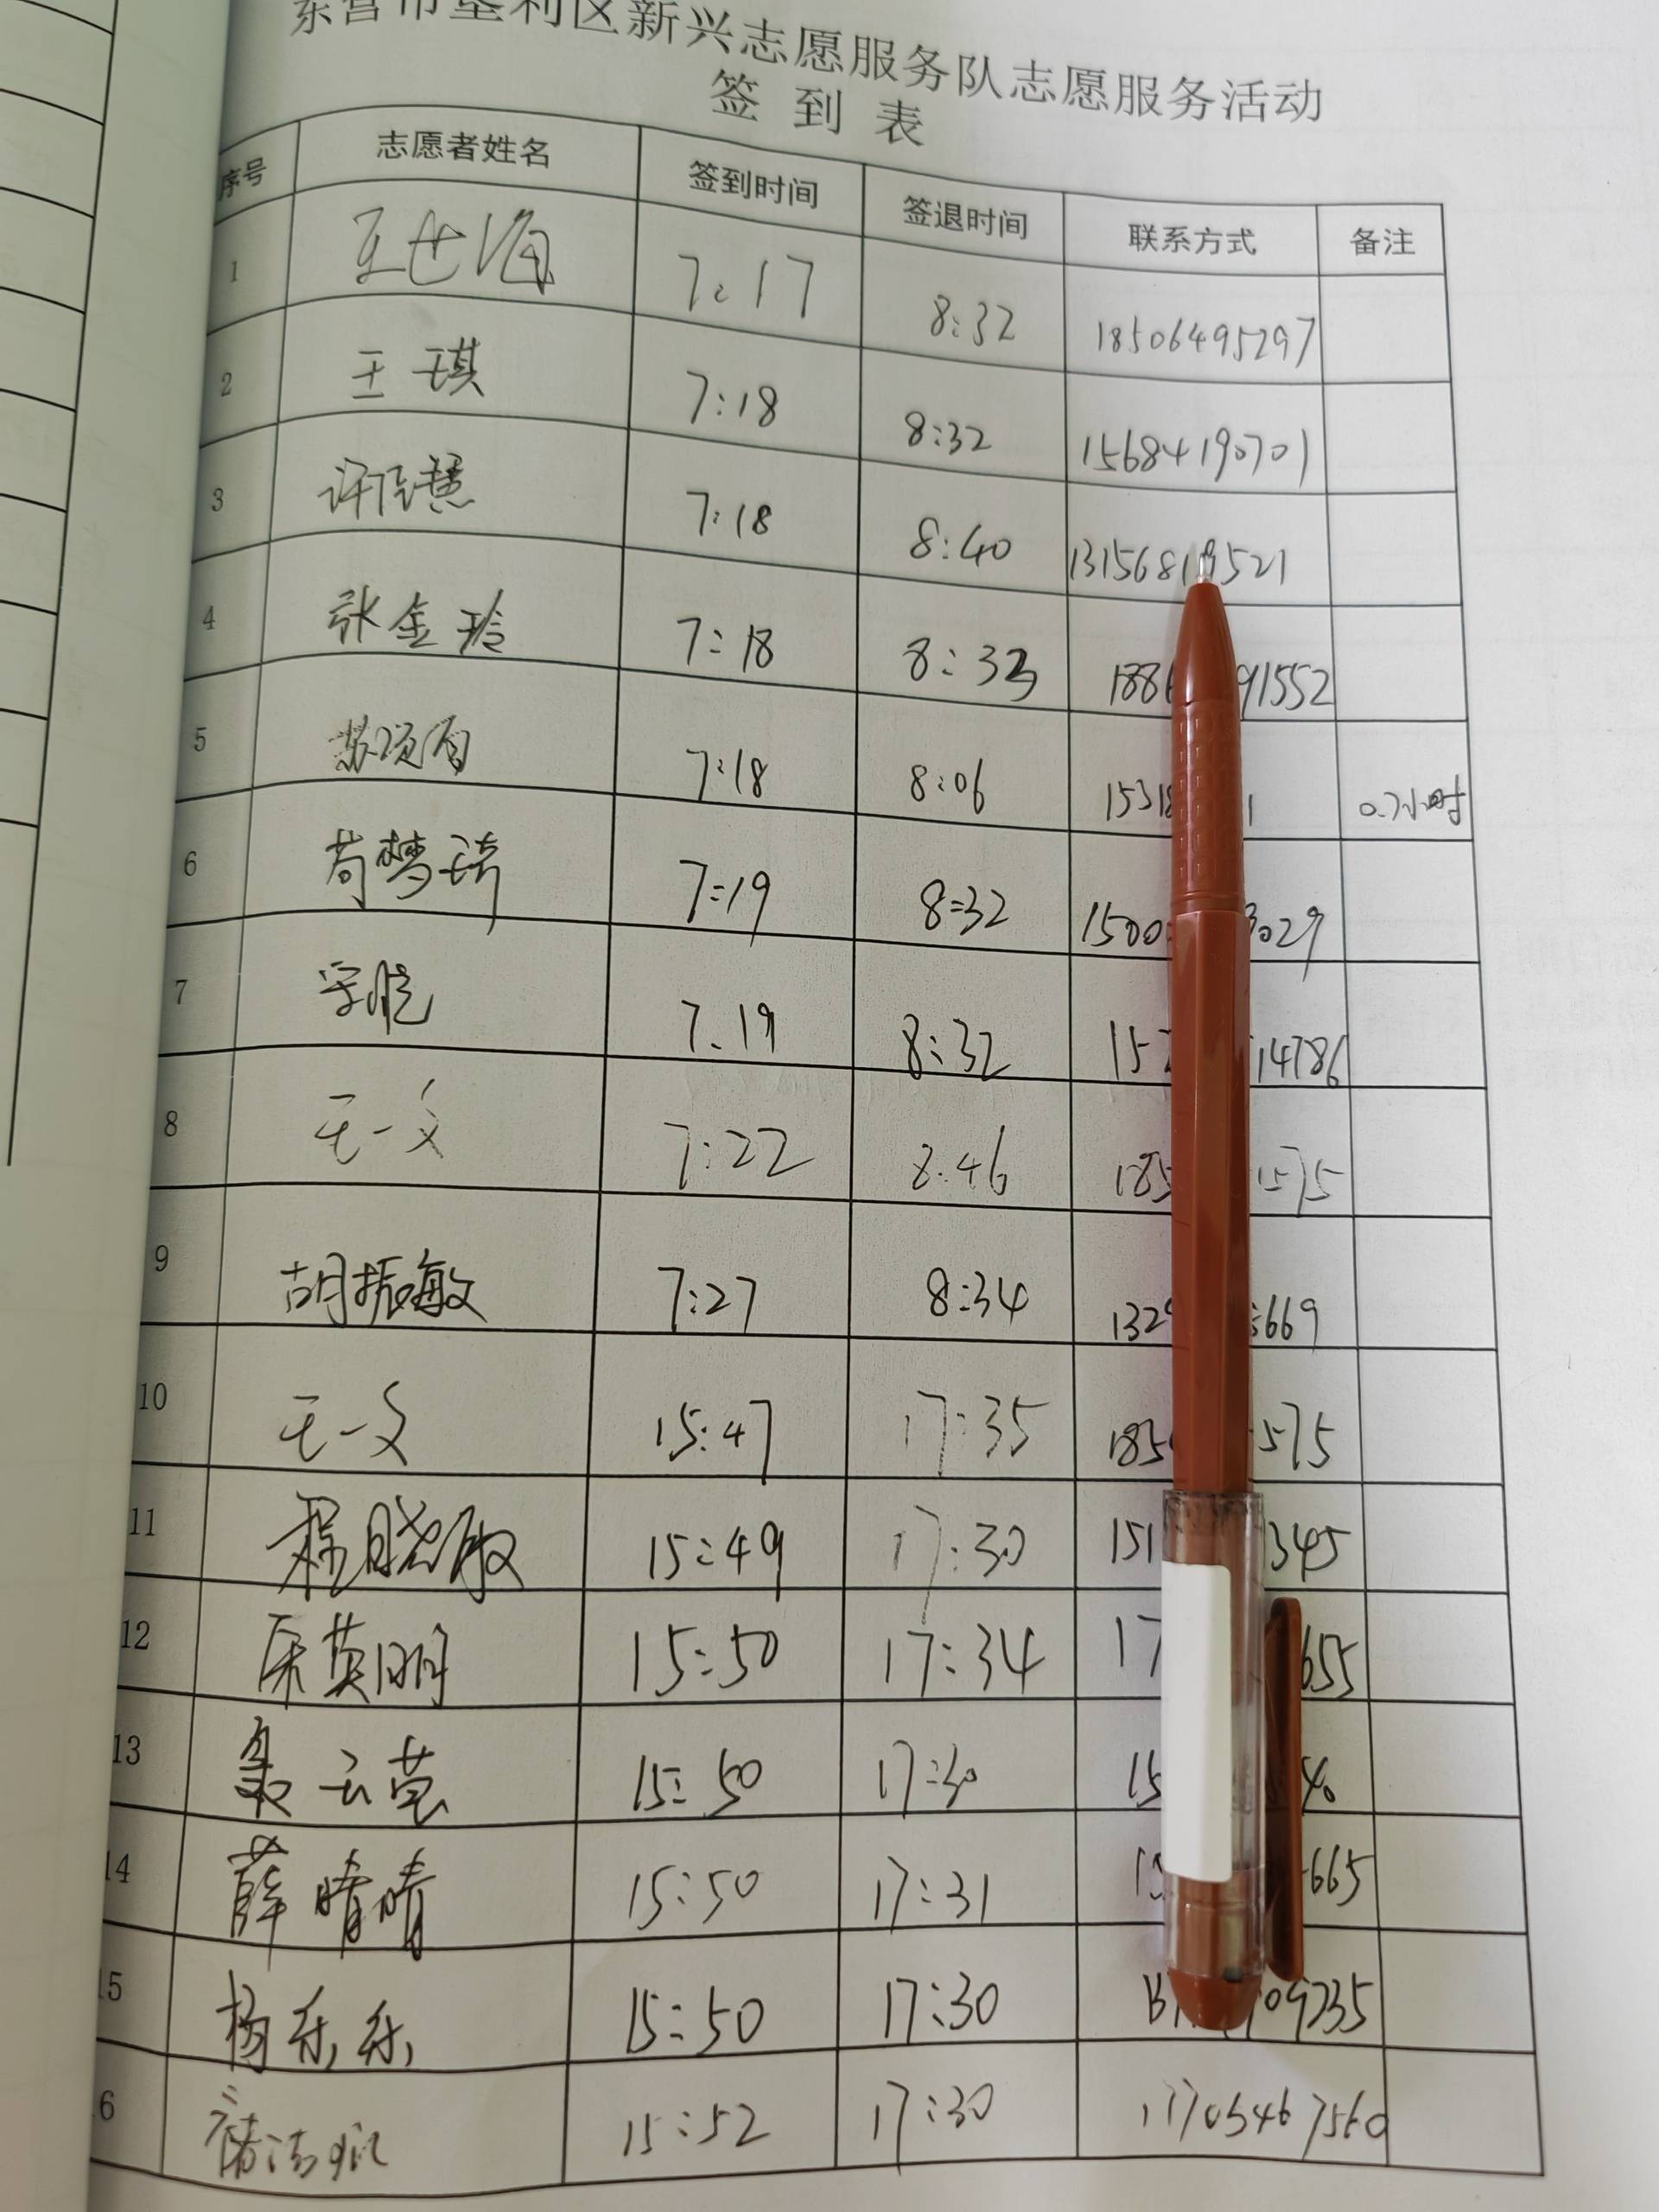 东营市垦利区新兴志愿服务队志愿服务活动
签到表
序号 志愿者姓名 签到时间 签退时间 联系方式 备注
1 7:17 8:32 18506495297
2 王琪 7:18 8:32 15684190701
3 许慧 7:18 8:40 13156819521
4 张金玲 7:18 8:33 188 91552
5 苏 7:18 8:06 1531 1 0.7小时
6 苟梦琦 7:19 8:32 1500 3029
7 7.19 8:32 15 14786
8 王一文 7:22 8:46 185 1575
9 胡振敏 7:27 8:34 132 669
10 王一文 15:47 17:35 185 575
11 程晓敏 15:49 17:30 151 345
12 英明 15:50 17:34 17 655
13 云英 15:50 17:30 15 40
14 薛晴晴 15:50 17:31 1 665
15 杨乐乐 15:50 17:30 09735
6 15:52 17:30 17705467560